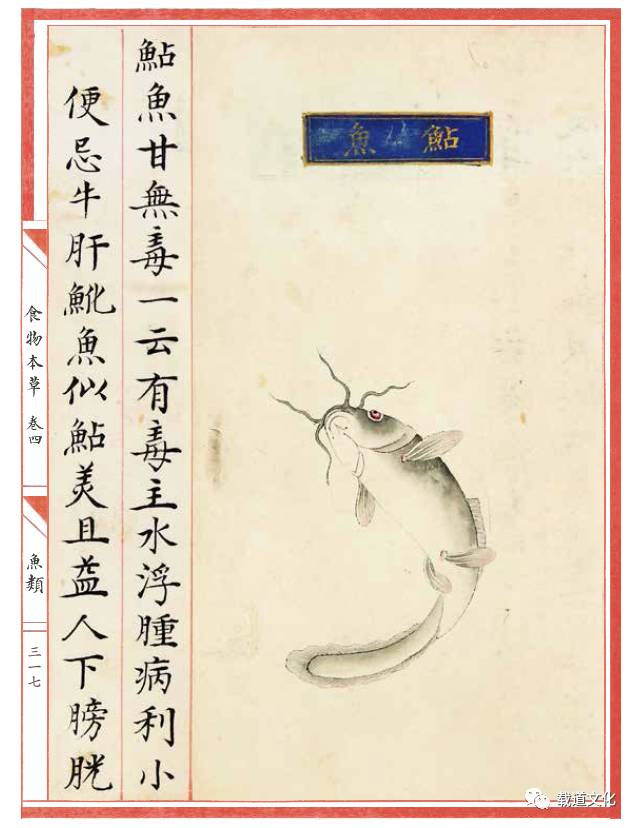 鮎魚
鮎魚甘無毒一云有毒主水浮腫病利小
便忌牛肝鮠魚似鮎美且益人下膀胱
食物本草 卷四
魚類
三一七
载道文化